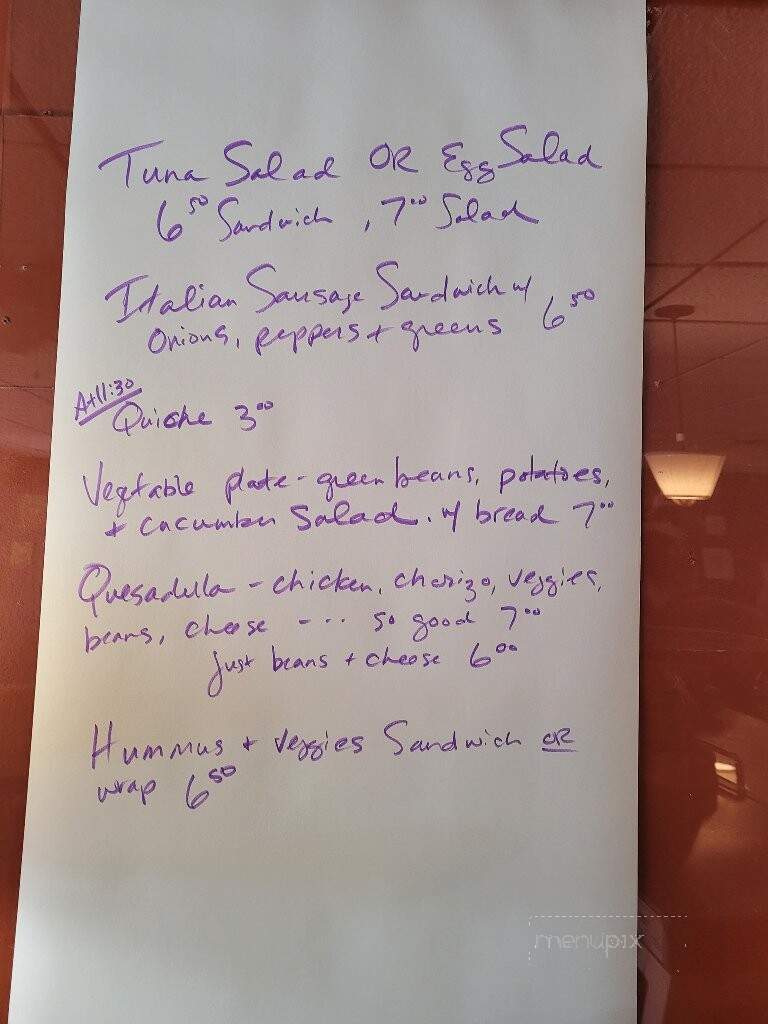 Tuna Salad OR Egg Salad
6⁵⁰ Sandwich, 7⁰⁰ Salad
Italian Sausage Sandwich w/
Onions, peppers + greens 6⁵⁰
At 11:30
Quiche 3⁰⁰
Vegetable plate - green beans, potatoes,
+ cucumber Salad. w/ bread 7⁰⁰
Quesadilla - chicken, chorizo, veggies,
beans, cheese - ... so good 7⁰⁰
just beans + cheese 6⁰⁰
Hummus + veggies Sandwich OR
wrap 6⁵⁰
menupix